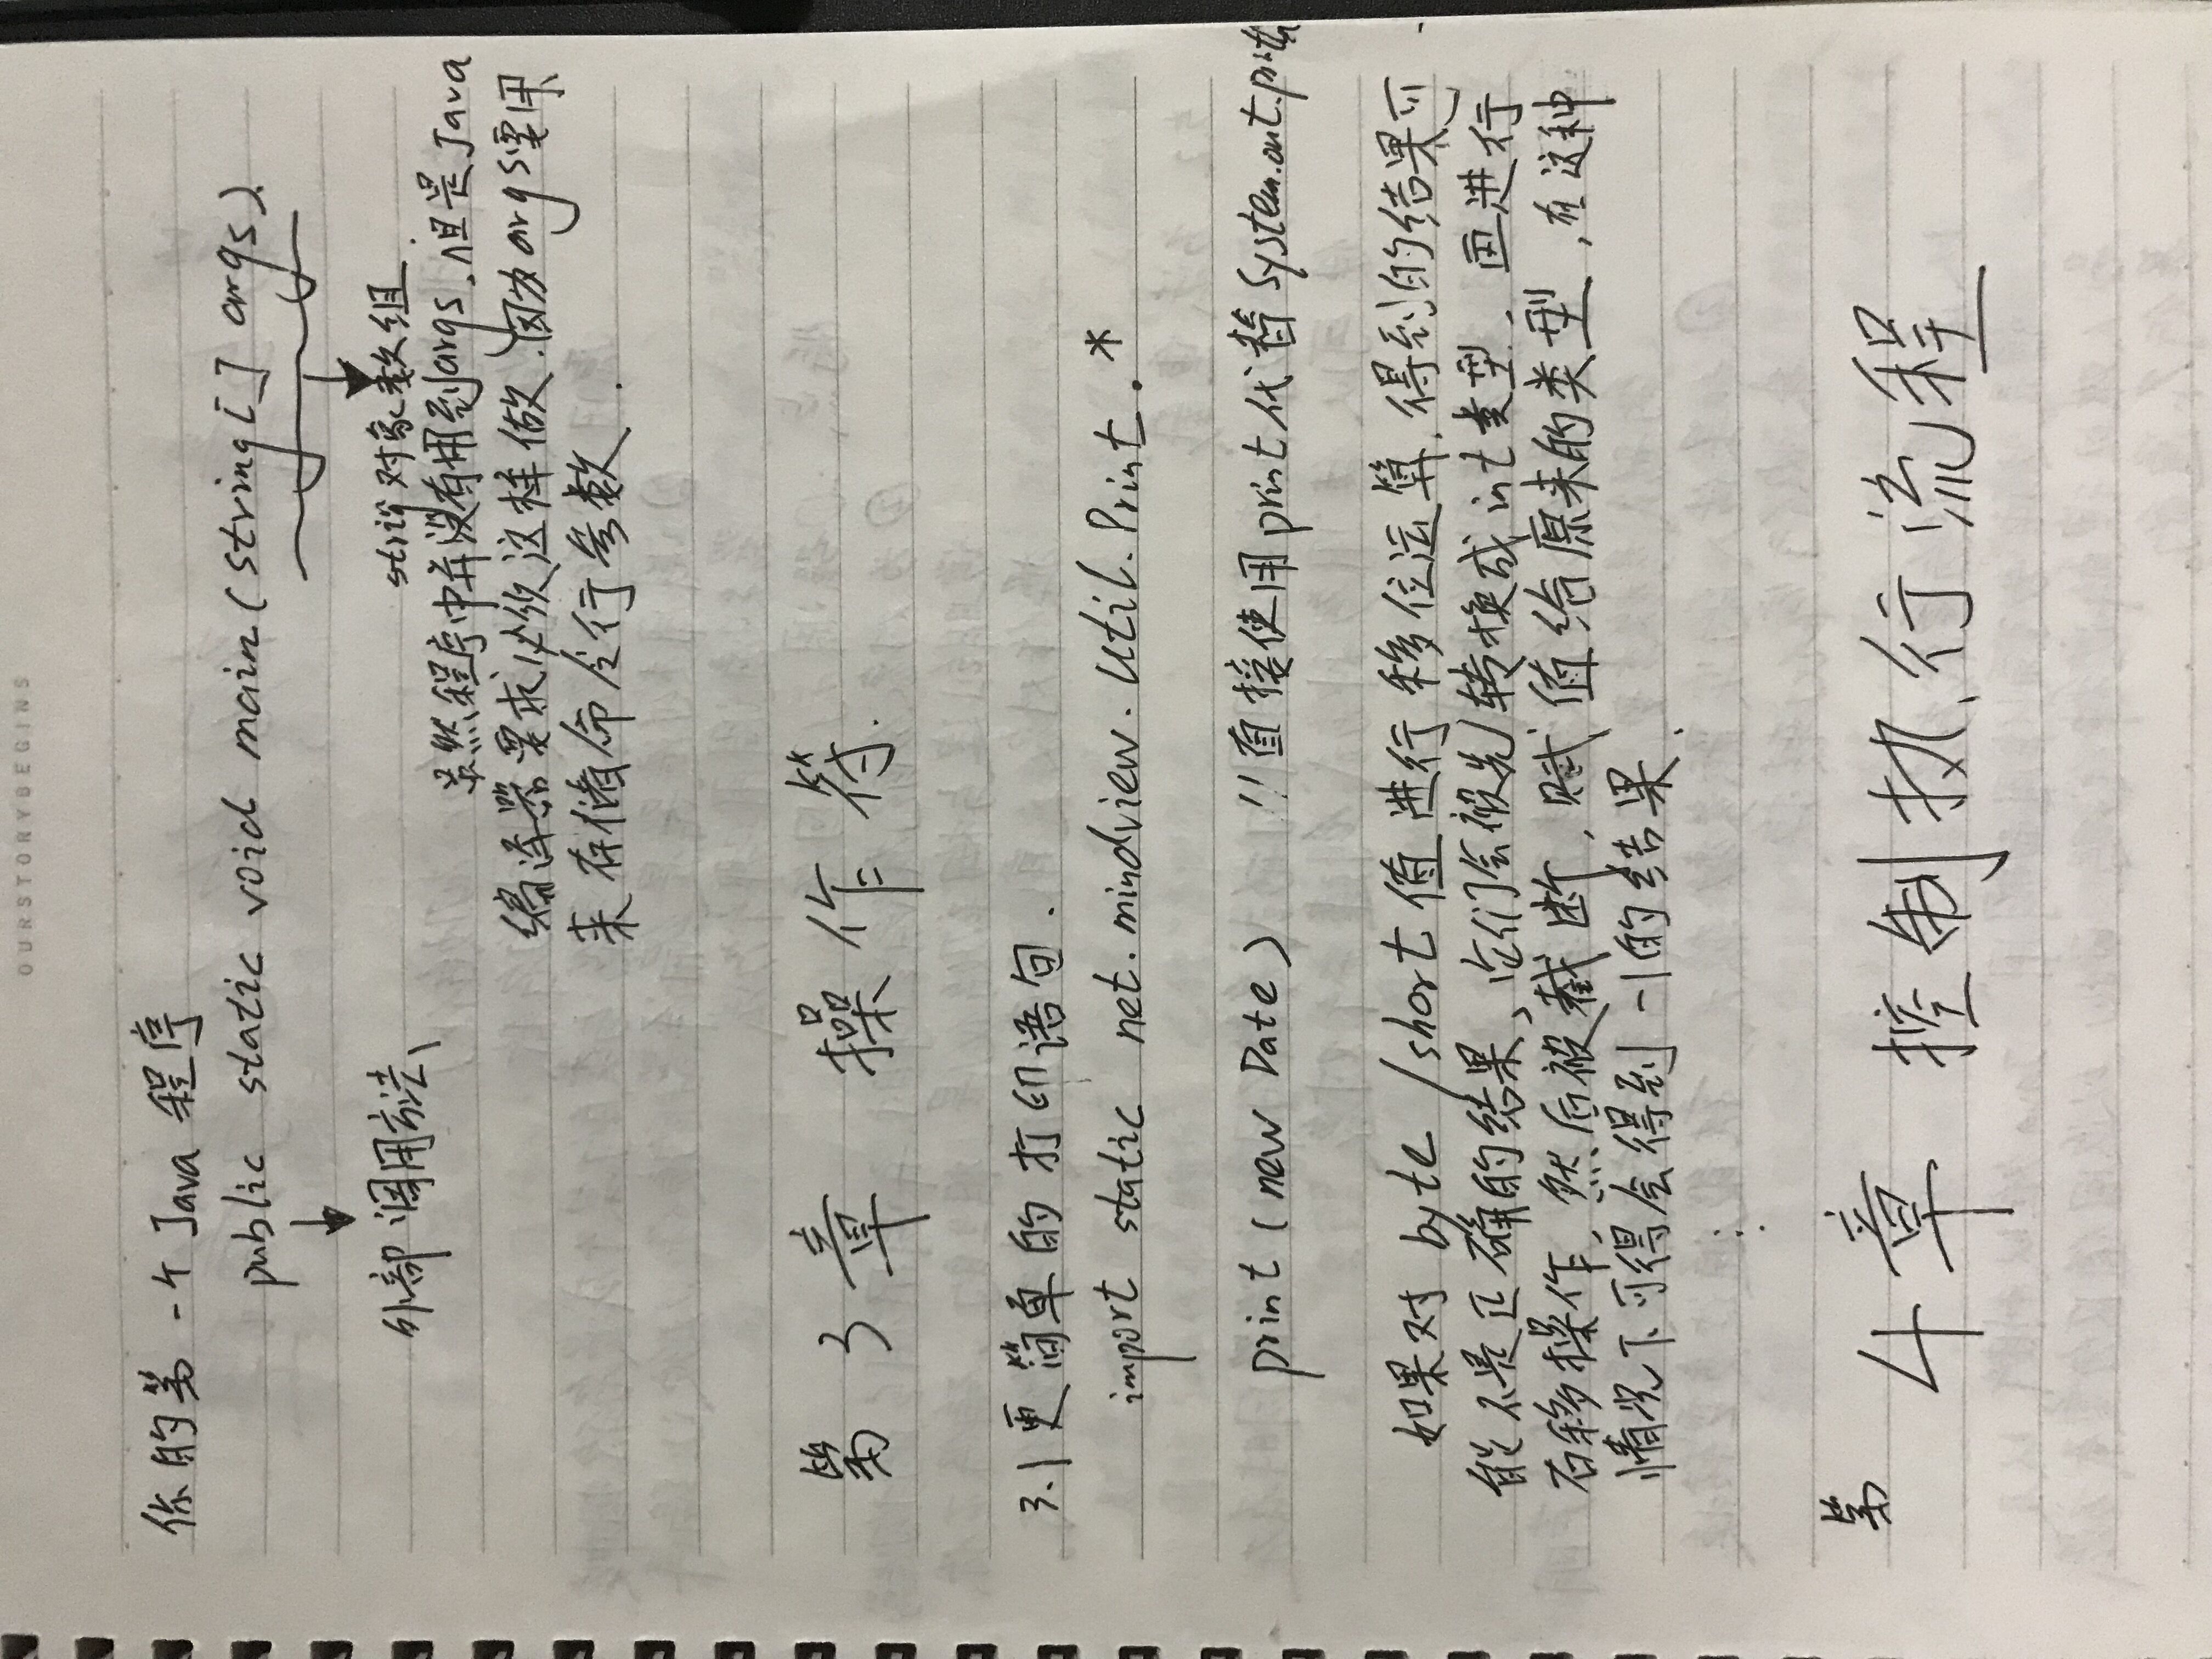 OURSTORYBEGINS
你的第一个Java 程序
public static void main(string[] args).
外部调用方法、
string对象数组.
虽然程序中并没有用到args.但是Java
编译器要求必须这样做.因为args要用
来存储命令行参数.
第3章 操作符.
3.1更简单的打印语句.
import static net.mindview.util.Print.*
print(new Date) //直接使用print代替System.out.println
如果对byte/short值进行移位运算.得到的结果可
能不是正确的结果、它们会被先转换成int类型.再进行
右移操作.然后被截断.赋值给原来的类型,在这种
情况下可得会得到-1的结果.
⋮
第4章 控制执行流程